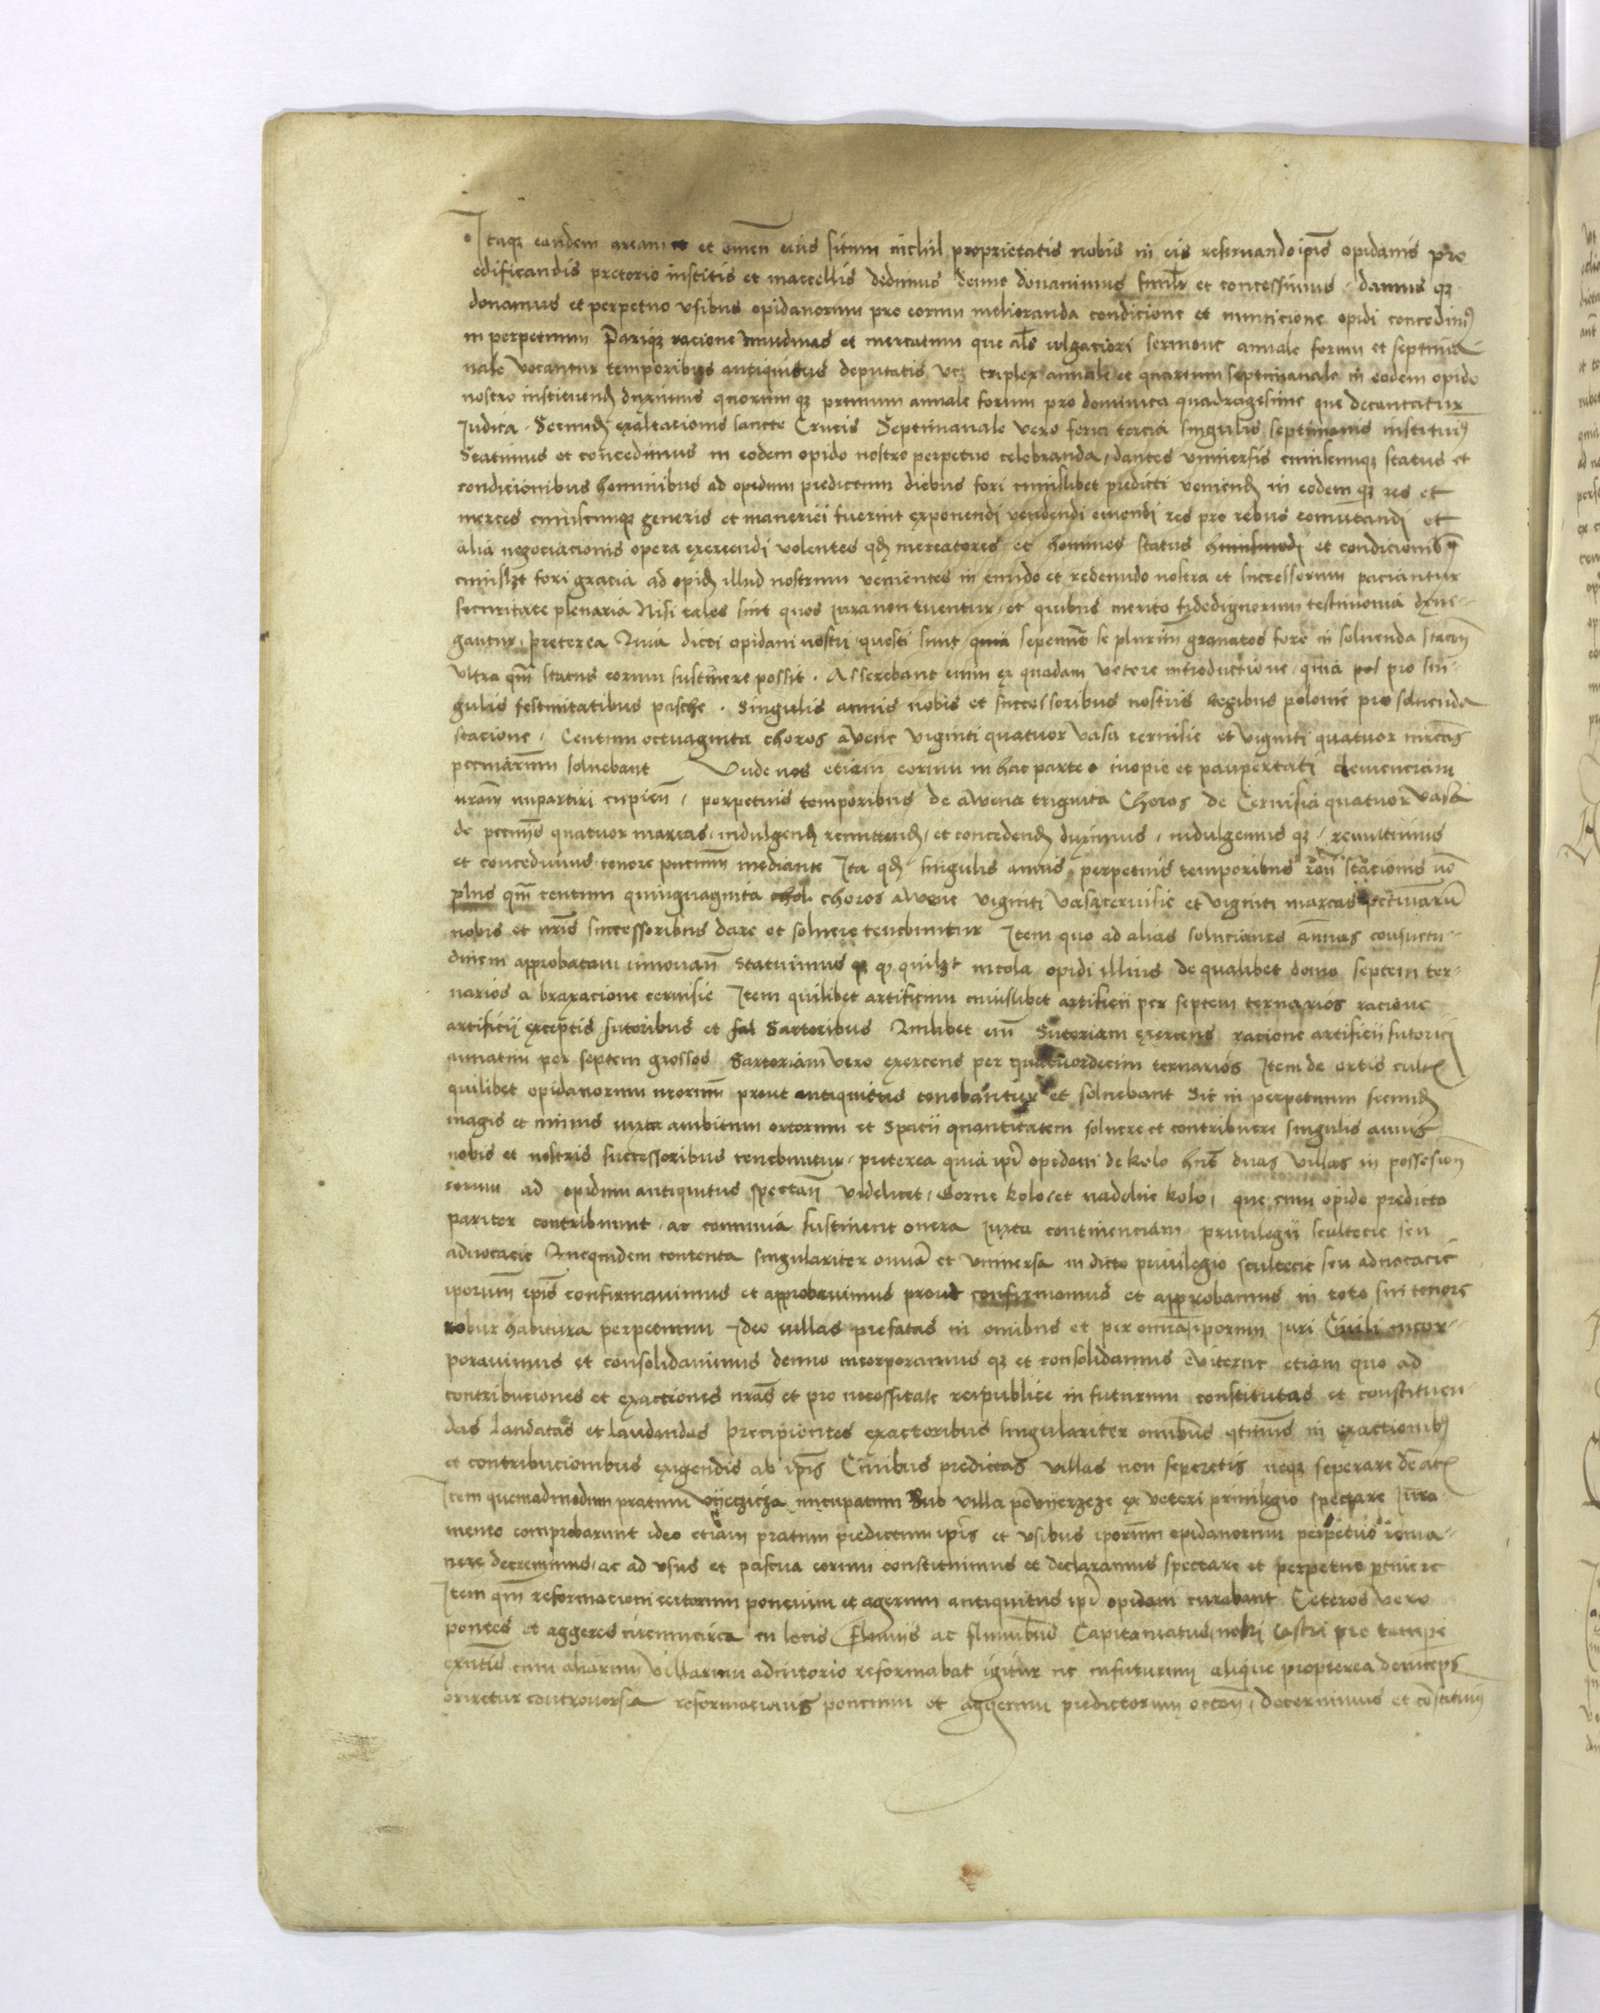 Itaque eandem aream et et omnem eius situm nichil proprietatis nobis in eis reservando ipsis opidanis pro
edificandis pretorio institis et maccellis dedimus denuo donavimus similiter et concessimus damus que
donamus et perpetuo usibus opidanorum pro eorum melioranda condicione et municione opidi concedimus
in perpetuum Parique racione nundinas et mercatum que als wlgaciori sermone annale forum et septima
nale vocantur temporibus antiquitus deputatis vcz triplex annale et quartum septimanale in eodem opido
nostro instituend duximus quorum que primum annale forum pro dominica quadragesime que decantatur
Judica Secund exaltacionis sancte Crucis Septimanale vero feria tercia singulis septimanis instituimus
Statuimus et concedimus in eodem opido nostro perpetuo celebranda dantes universis cuiuscunque status et
condicionibus hominibus ad opidum predictum diebus fori cuiuslibet predicti veniend in eodem que res et
merces cuiuscunque generis et maneriei fuerint exponendi vendendi emendi res pro rebus comutandi et
alia negociacionis opera exercendi volentes qd mercatores et homines status huiusmodi et condicionibus
cuiuslzt fori gracia ad opid illud nostrum venientes in eundo et redeundo nostra et successorum paciantur
securitate plenaria Nisi tales sint quos iura non tuentur et quibus merito fidedignorum testimonia dene
gantur Preterea Quia dicti opidani nostri questi sunt quia sepenumero se plurimum gravatos fore in solvenda stacione
ultra quam status eorum sustinere possit Asserebant enim ex quadam vetere introductione quia pos pro sin
gulis festivitatibus pasche Singulis annis nobis et successoribus nostris Regibus polonie pro solvenda
stacione Centum octuaginta choros avene viginti quatuor vasa cervisie et viginti quatuor marcas
pecuniarum solvebant Unde nos etiam eorum in hac parte inopie et paupertati clemenciam
nram impartiri cupien perpetuis temporibus de avena triginta Choros de Cervisia quatuor vasa
de pecuniis quatuor marcas indulgend remittend et concedend duximus indulgemus que remittimus
et concedimus tenore presencium mediante Ita qd singulis annis perpetuis temporibus ron stacionis no
plus qm centum quinquaginta chol choros avene viginti vasa cervisie et viginti marcas pecuniarum
nobis et nris successoribus dare et solvere tenebuntur Item quo ad alias soluciones annuas consuetu
dinem approbatam innovan Statuimus que quilzt incola opidi illius de qualibet domo septem ter
narios a braxacione cervisie Item quilibet artificum cuiuslibet artificii per septem ternarios racione
artificii exceptis sutoribus et sal Sartoribus Quilibet enim Sutoriam exercens racione artificii sutorii
annatim per septem grossos Sartoriam vero exercens per quatuordecim ternarios Item de ortis cultis
quilibet opidanorum nrorum prout antiquitus tenebantur et solvebant Sic in perpetuum secund
magis et minus iuxta ambitum ortorum et spacii quantitatem solvere et contribuere singulis annis
nobis et nostris successoribus tenebuntur preterea quia ipsi opidani de kolo habent duas villas in possession
eorum ad opidum antiquitus spectan videlicet Gorne kolo et nadolne kolo que cum opido predicto
pariter contribuunt ac communia sustinent onera iuxta continenciam privilegii scultecie seu
advocacie Que quidem contenta singulariter omnia et universa in dicto privilegio scultecie seu advocacie
iporum ipsis confirmavimus et approbavimus prout confirmamus et approbamus in toto sui tenore
robur habitura perpetuum Ideo villas prefatas in omnibus et per omnia iporum iuri Civili incor
poravimus et consolidavimus denuo incorporamus que et consolidamus eviterne etiam quo ad
contribuciones et exactiones nras et pro necessitate reipublice in futurum constitutas et constituen
das laudatas et laudandas precipientes exactoribus singulariter omnibus qtinus in exactionibus
et contribucionibus exigendis ab ipis Civibus predictas villas non seperetis neque seperare debeatis
Item quemadmodum pratum Vyeczicza nuncupatum Sub villa povyerzeze ex veteri privilegio spectare iura
mento comprobarunt ideo etiam pratum predictum ipsis et usibus iporum opidanorum perpetuo rema
nere decrevimus ac ad usus et pascua eorum constituimus et declaramus spectare et perpetuo ptinere
Item qm reformacioni certorum poncium et agerum antiquitus ipsi opidani curabant Ceteros vero
pontes et aggeres circumcirca in locis fluviis ac fluminibus Capitaneatus nostri Castri pro tempe
exntis cum aliarum villarum adiutorio reformabat igitur ne infuturum alique propterea deinceps
oriretur controversia reformacionis poncium et aggerum predictorum occon decernimus et constituimus